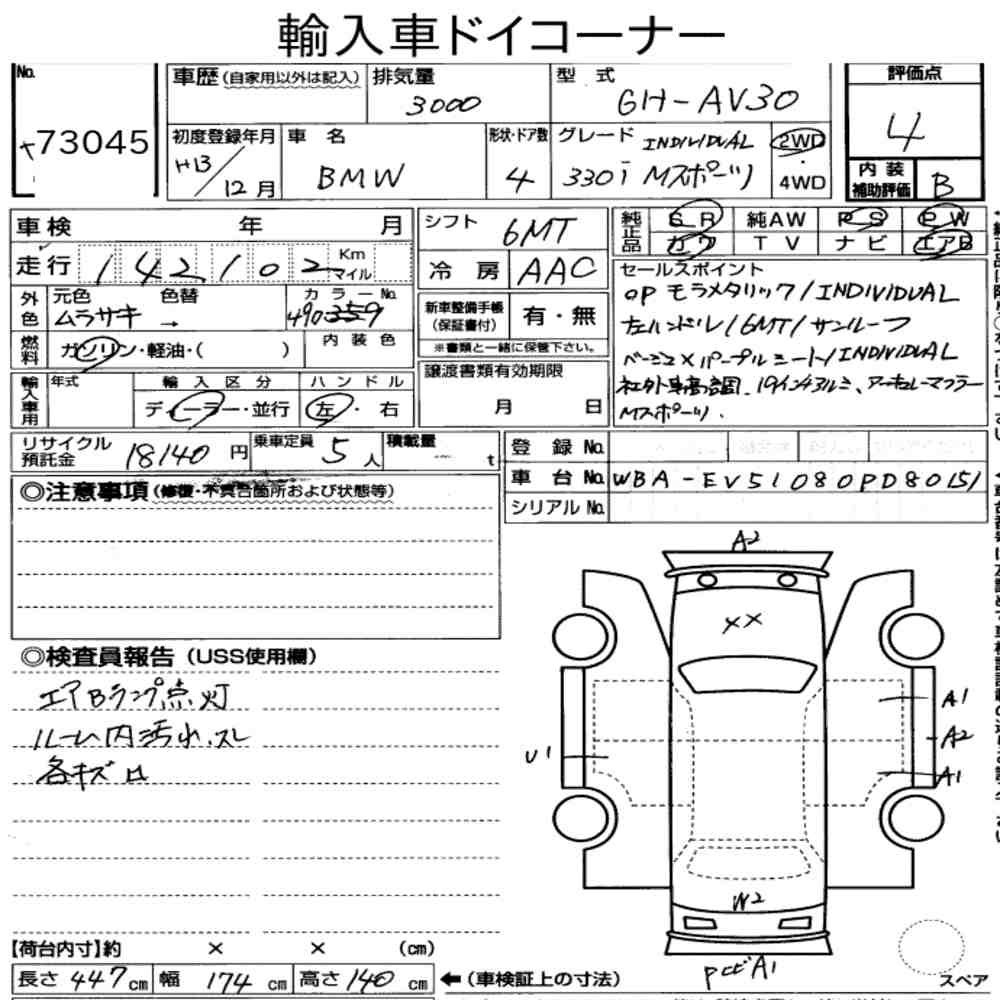 輸入車ドイコーナー
No.
73045
車歴 (自家用以外は記入)
排気量
3000
型式
GH-AV30
評価点
4
初度登録年月
H13/12月
車名
BMW
形状・ドア数
4
グレード INDIVIDUAL
330i Mスポーツ
2WD
・
4WD
内装
補助評価
B
車検 年 月
走行 142,102 Km
マイル
シフト 6MT
冷房 AAC
純正品
SR 純AW PS PW
カワ TV ナビ エアB
外色
元色 色替
ムラサキ →
カラーNo.
490359
燃料
ガソリン・軽油・( )
内装色
新車整備手帳
(保証書付)
有・無
※書類と一緒に保管下さい。
セールスポイント
OP モラメタリック/INDIVIDUAL
左ハンドル/6MT/サンルーフ
ベージュ×パープルシート/INDIVIDUAL
社外車高調.19インチアルミ、アーキュレーマフラー
Mスポーツ.
輸入車用
年式
輸入区分
ディーラー・並行
ハンドル
左・右
譲渡書類有効期限
月 日
リサイクル
預託金
18140円
乗車定員 5人
積載量 — t
登録No.
車台No. WBA-EV51080PD80151
シリアルNo.
◎注意事項(修復・不具合箇所および状態等)
◎検査員報告(USS使用欄)
エアBランプ点灯
ルーム内汚れ.スレ
各キズロ
A2
××
A1
A2
A1
U1
W2
PヒビA1
スペア
【荷台内寸】約 × × (cm)
長さ 447cm 幅 174cm 高さ 140cm
←(車検証上の寸法)